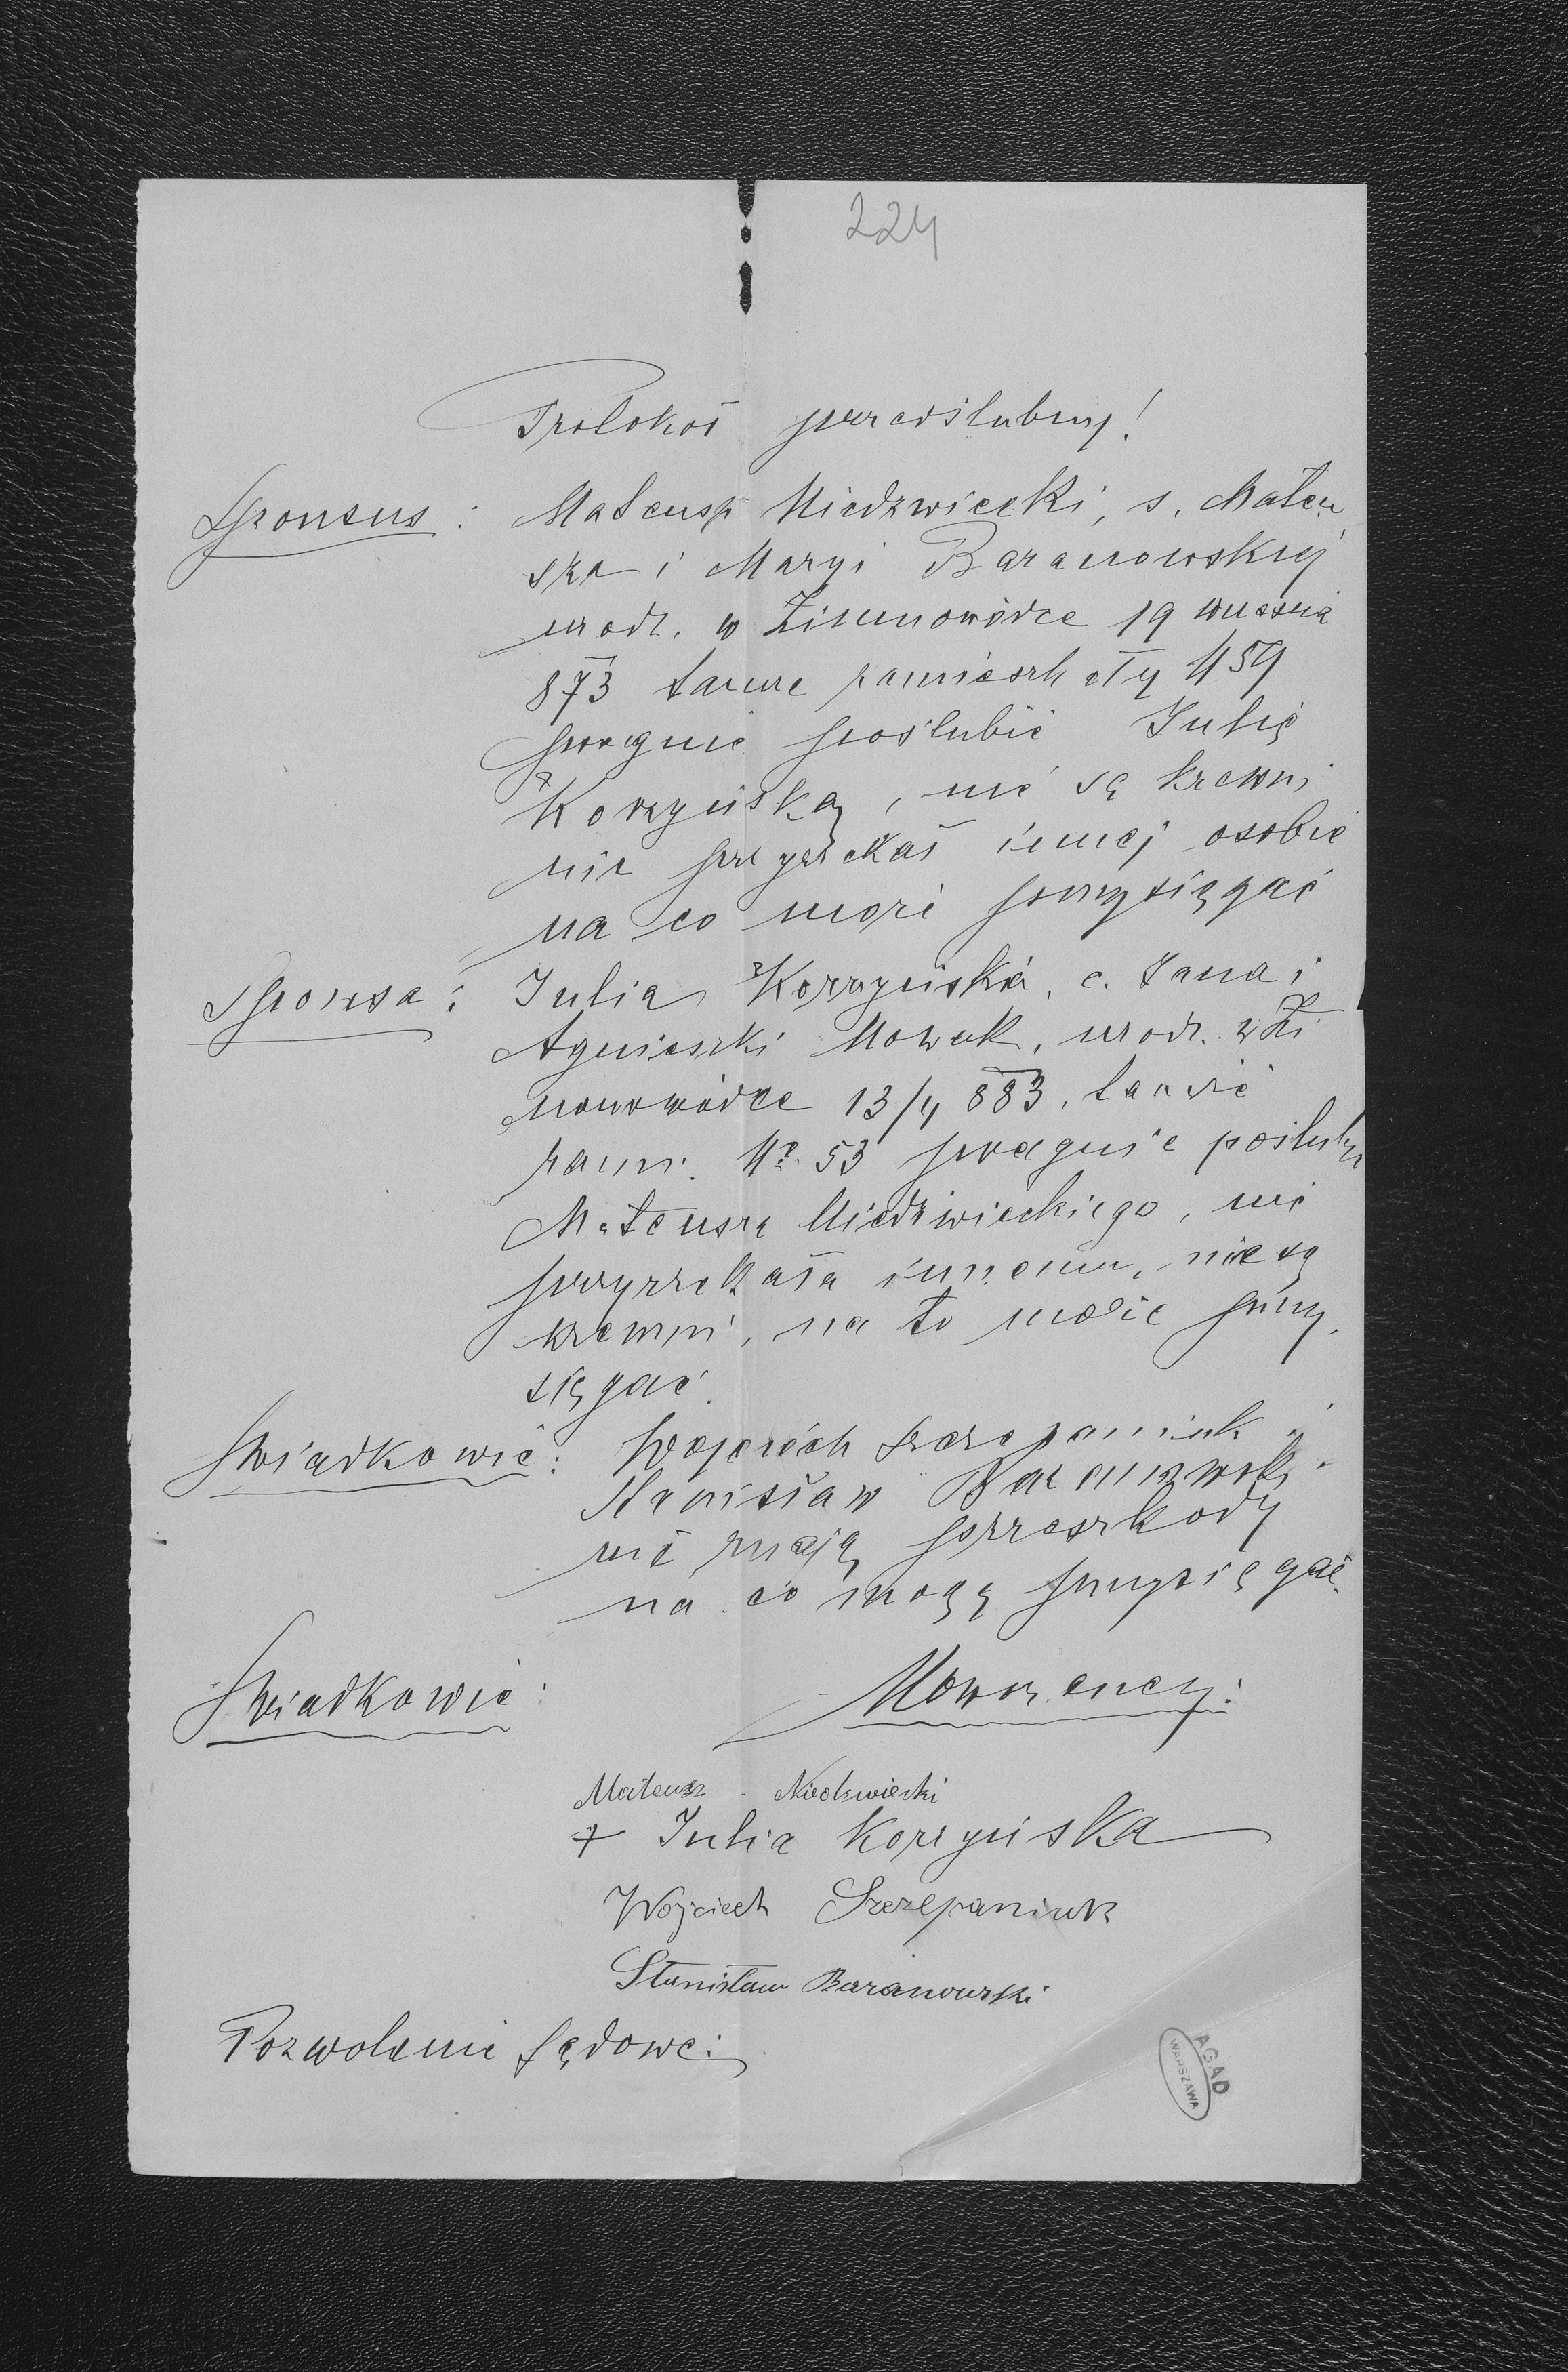 224
Protokół przedślubny!
Sponsus: Mateusz Niedzwiecki, s. Mateu
sza i Maryi Baranowskiej
urodz. w Zimnowódce 19 września
873 tamże zamieszkały N 59
pragnie poślubić Julię
Korzyńską, nie są krewni
nie przyrzekał innej osobie
na co może przysięgać
Sponsa: Julia Korzyńska, c. Jana i
Agnieszki Nowak, urodz. w Zi
mnowódce 13/4 883, tamże
zam. No 53 pragnie poślubić
Mateusza Niedźwieckiego, nie
przyrzekała innemu, nie są
krewni, na to może przy
sięgać.
Świadkowie: Wojciech Szczepaniuk i
Stanisław Baranowski
nie znają przeszkody
na co mogą przysięgać.
Świadkowie: Nowożeńcy:
Mateusz Niedzwiecki
+ Julia Korzyńska
Wojciech Szczepaniuk
Stanisław Baranowski
Pozwolenie sądowe:
AGAD
WARSZAWA